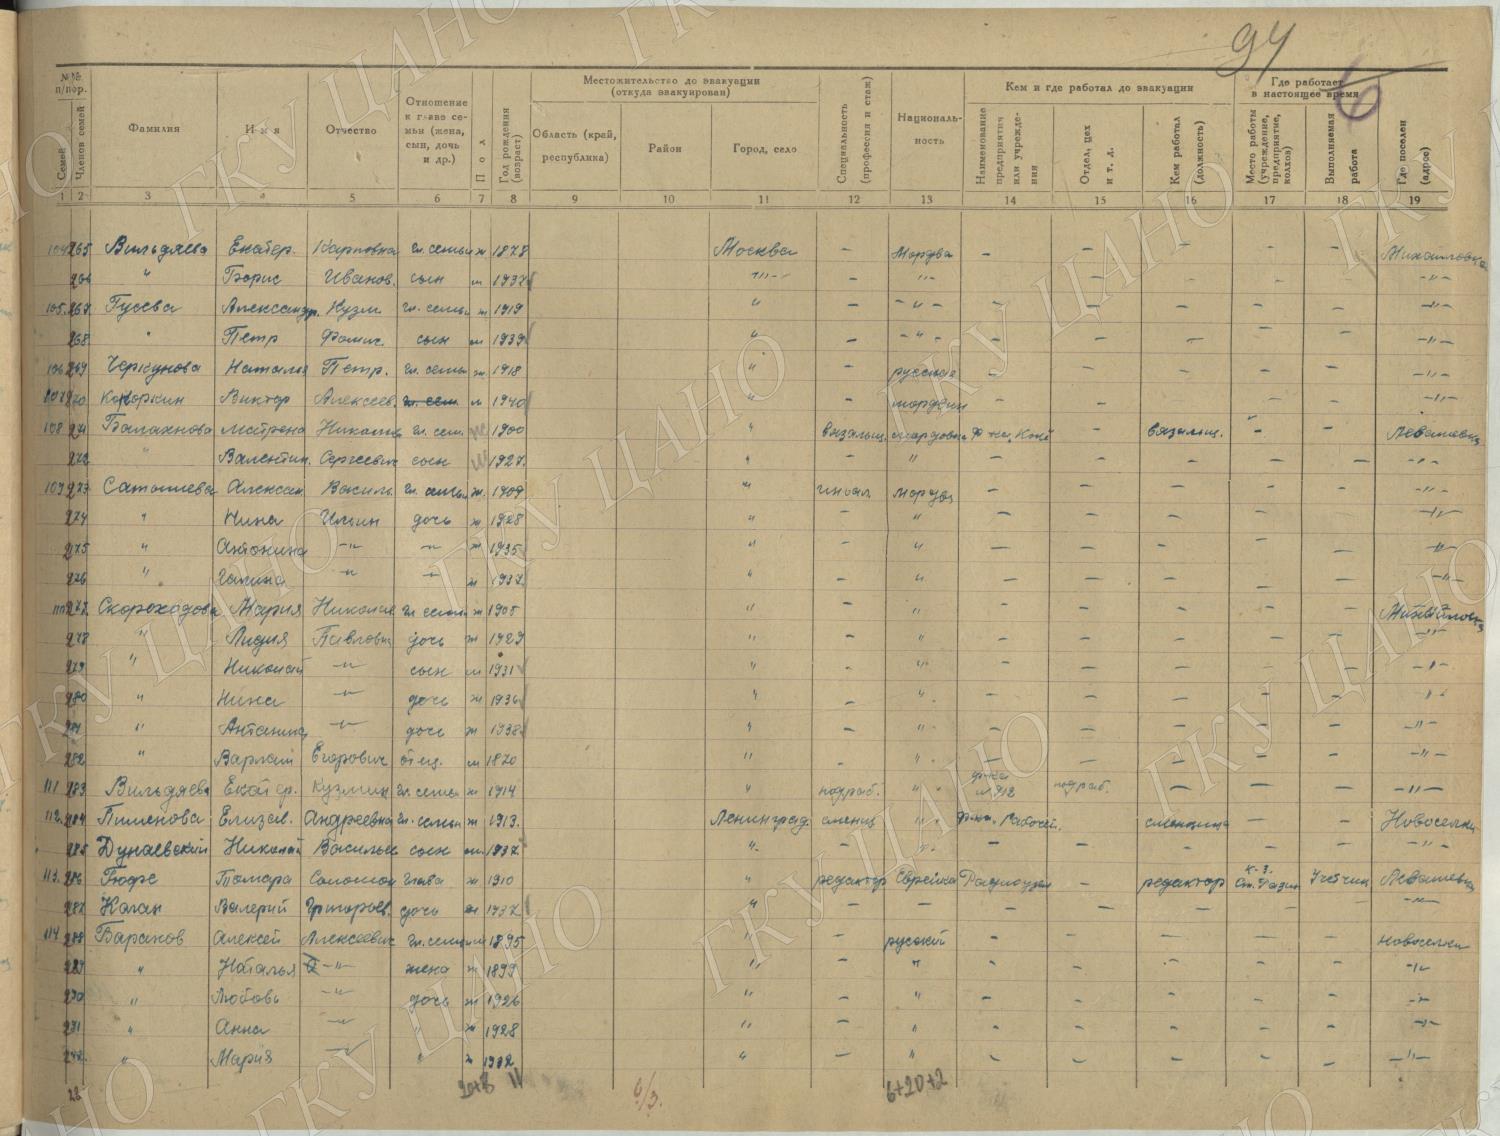 94
6
№№ п/пор. Местожительство до эвакуации (откуда эвакуирован) Кем и где работал до эвакуации Где работает в настоящее время
Семей Членов семей Фамилия Имя Отчество Отношение к главе семьи (жена, сын, дочь и др.) Пол Год рождения (возраст) Область (край, республика) Район Город, село Специальность (профессия и стаж) Национальность Наименование предприятия или учреждения Отдел, цех и т. д. Кем работал (должность) Место работы (учреждение, предприятие, колхоз) Выполняемая работа Где поселен (адрес)
1 2 3 4 5 6 7 8 9 10 11 12 13 14 15 16 17 18 19
104 265 Вильдяева Екатер. Карповна гл. семьи ж 1878 Москва — Мордва — — — — — Михайловка
266 " Борис Иванов. сын м 1937 —"— — —"— — — — — —"—
105. 267 Гусева Александр. Кузм. гл. семьи ж 1919 " — — " — — — — — — —"—
268 " Петр Фомич. сын м 1939 " — — " — — — — — — —"—
106 269 Черкунова Наталья Петр. гл. семьи ж 1918 " — русская — — — — — —"—
107 270 Виктор Алексеев. м 1940 " — мордвин — — — — —"—
108 271 Балахнова Матрена гл. сем. ж 1900 " вязальщ. мордовка — вязальщ. — — Левашевка
272 " Валентин. Сергеевич сын м 1927. " — " — — — — — —"—
109 273 Александ. Василь. гл. семьи ж. 1909 " мордва — — — — — —"—
274 " Нина Ильин дочь ж 1928 " — " — — — — — —"—
275 " Антонина —"— —"— ж 1935 " — " — — — — — —"—
276 " Галина —"— —"— ж 1937. " — " — — — — — —"—
110 277 Скороходова Мария Николае гл семьи ж 1905 " — " — — — — — Михайловка
278 " Лидия Павловна дочь ж 1929 " — " — — — — — —"—
279 " Николай —"— сын м 1931 " — " — — — — — —"—
280 " Нина —"— дочь ж 1936 " — " — — — — — "—
281 " Антанина —"— дочь ж 1938 " — " — — — — — —"—
282 " Варлам Егорович отец. м 1870 " — " — — — — — —"—
111 283 Вильдяева Екатер. Кузмин гл. семьи ж 1914 " подраб. " ф-ка №912 подраб. — — — —"—
112. 284 Пименова Елизав. Андреевна гл. семьи ж 1913. Ленинград сменщ " ф-ка. Рабочей. сменщица — — Новоселки
285 Дунаевский Николай Васильев сын м 1937 " — " — — — — — —"—
113. 286 Гюфе Тамара Соломон глава ж 1910 " редактор Еврейка Радиоузел — редактор К-з. Ст. Разин Учетчик Левашевка
287 Каган Валерий Григорьев. дочь ж 1937 " — — — — — — — —"—
114 288 Баранов Алексей Алексеевич гл. семьи м 1895 " русский — — — — — новоселки
289 " Наталья —"— жена ж 1899 " — " — — — — — —"—
290 " Любовь —"— дочь ж 1926 " — " — — — — — —"—
291 " Анна —"— " ж 1928 " — " — — — — — —"—
292. " Мария —"— " ж 1932 " — " — — — — — —"—
28 20+8 11 6/3. 6+20+2
ГКУ ЦАНО